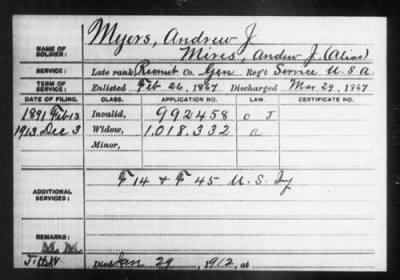 NAME OF SOLDIER: Myers, Andrew J
Mires, Andew J. (Alias)
SERVICE: Late rank Recruit Co. Gen Reg't Service U.S.A.
TERM OF SERVICE: Enlisted Feb 26, 1867 Discharged Mar 29, 1867
DATE OF FILING. CLASS. APPLICATION NO. LAW. CERTIFICATE NO.
1891 Feb 13 Invalid, 992458 O J
1913. Dec 3 Widow, 1.018.332 a
Minor,
ADDITIONAL SERVICES: F 14 & F 45 U.S. Iny
REMARKS:
Died Jan 29, 1912, at